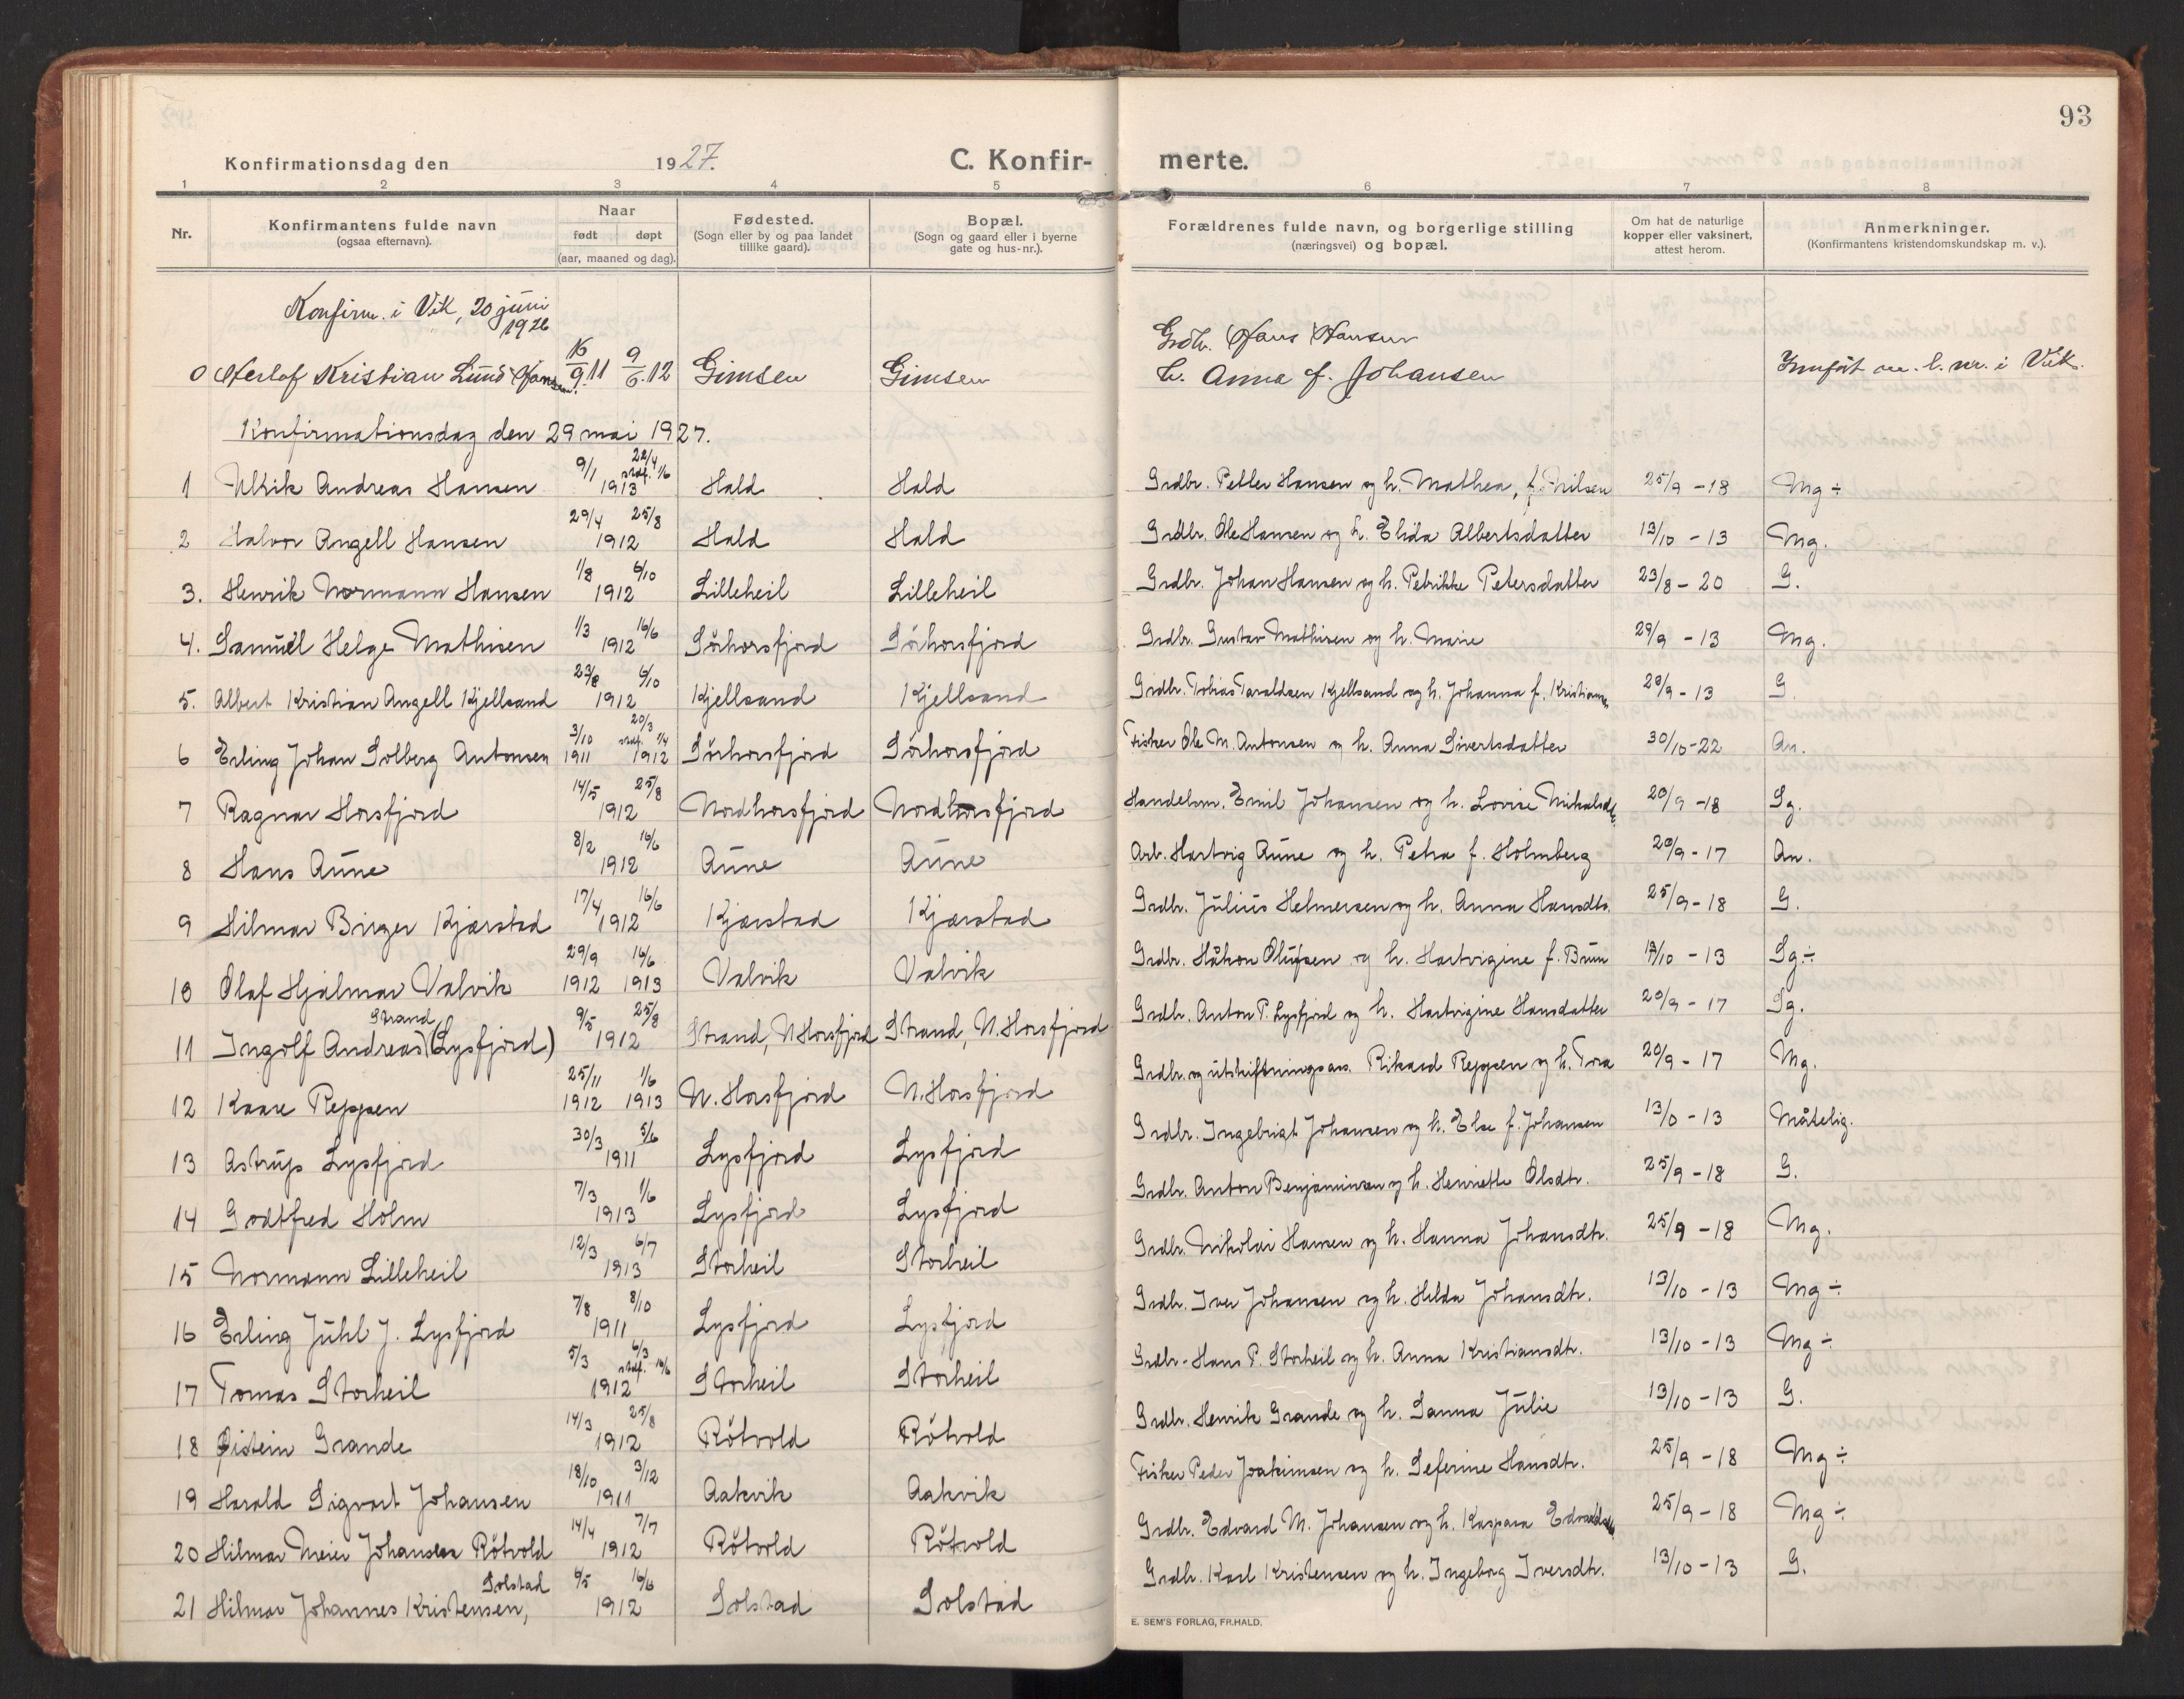 93
Konfirmationsdag den 1927. C. Konfir- merte.
1 2 3 4 5 6 7 8
Nr. Konfirmantens fulde navn (ogsaa efternavn). Naar født døpt (aar, maaned og dag). Fødested. (Sogn eller by og paa landet tillike gaard). Bopæl. (Sogn og gaard eller i byerne gate og hus-nr.). Forældrenes fulde navn, og borgerlige stilling (næringsvei) og bopæl. Om hat de naturlige kopper eller vaksinert, attest herom. Anmerkninger. (Konfirmantens kristendomskundskap m. v.).
Konfirm. i Vik, 20 juni 1926
0 Herlof Kristian Lund Hansen. 16/9 11 9/6 12 Gimsen Gimsen Grdbr. Hans Hansen h. Anna f. Johansen Innført i Vik.
Konfirmationsdag den 29 mai 1927.
1 Ulrik Andreas Hansen 9/1 22/4 stdf. 1/6 1913 Hald Hald Grdbr. Petter Hansen og h. Mathea, f. Nilsen 25/9 - 18 Mg ÷
2 Halvor Angell Hansen 29/4 25/8 1912 Hald Hald Grdbr. Ole Hansen og h. Elida Albertsdatter 13/10 - 13 Mg.
3. Henrik Normann Hansen 1/8 6/10 1912 Lilleheil Lilleheil Grdbr. Johan Hansen og h. Petrikke Petersdatter 23/8 - 20 G.
4. Samuel Helge Mathisen 1/3 16/6 1912 Sörhorsfjord Sörhorsfjord Grdbr. Gustav Mathisen og h. Marie 29/9 - 13 Mg.
5. Albert Kristian Angell Kjellsand 23/8 6/10 1912 Kjellsand Kjellsand Grdbr. Tobias Taraldsen Kjellsand og h. Johanna f. Kristiansen 29/9 - 13 G.
6 Erling Johan Solberg Antonsen 3/10 1911 20/3 stdf. 1/4 1912 Sörhorsfjord Sörhorsfjord Fisker Ole M. Antonsen og h. Anna Sivertsdatter 30/10 - 22 An.
7 Ragnar Horsfjord 14/5 25/8 1912 Nordhorsfjord Nordhorsfjord Handelsm. Emil Johansen og h. Lovise 20/9 - 18 Sg.
8 Hans Aune 8/2 16/6 1912 Aune Aune Arb. Hartvig Aune og h. Petra f. Holmberg 20/9 - 17 An.
9 Hilmar Birger Kjærstad 17/4 16/6 1912 Kjærstad Kjærstad Grdbr. Julius Helmersen og h. Anna Hansdtr. 25/9 - 18 G.
10 Olaf Hjalmar Valvik 29/9 1912 16/6 1913 Valvik Valvik Grdbr. Håkon Olufsen og h. Hartvigine f. Brun 13/10 - 13 Sg. ÷
11 Ingolf Andreas Strand (Lysfjord) 9/5 25/8 1912 Strand, N. Horsfjord Strand, N. Horsfjord Grdbr. Anton P. Lysfjord og h. Hartvigine Hansdatter 20/9 - 17 Sg.
12 Kaare Reppen 25/11 1912 1/6 1913 N. Horsfjord N. Horsfjord Grdbr. og utskiftningsas. Rikard Reppen og h. Tora 20/9 - 17 Mg.
13 Astrup Lysfjord 30/3 5/6 1911 Lysfjord Lysfjord Grdbr. Ingebrigt Johansen og h. Else f. Johansen 13/0 - 13 Måtelig.
14 Godtfred Holm 7/3 1/6 1913 Lysfjord Lysfjord Grdbr. Anton Benjaminsen og h. Henriette Olsdtr. 25/9 - 18 G.
15 Normann Lilleheil 12/3 6/7 1913 Storheil Storheil Grdbr. Nikolai Hansen og h. Hanna Johansdtr. 25/9 - 18 Mg.
16 Erling Juhl J. Lysfjord 7/8 8/10 1911 Lysfjord Lysfjord Grdbr. Iver Johansen og h. Hilda Johansdtr. 13/10 - 13 Mg ÷
17 Tomas Storheil 5/3 6/3 stdf. 16/6 1912 Storheil Storheil Grdbr. Hans P. Storheil og h. Anna Kristiansdtr. 13/10 - 13 Mg ÷
18 Øistein Grande 14/3 25/8 1912 Rötvold Rötvold Grdbr. Henrik Grande og h. Sanna Julie 13/10 - 13 G.
19 Harald Sigvart Johansen 18/10 3/12 1911 Aakvik Aakvik Fisker Peder Joakimsen og h. Seferine Hansdtr. 25/9 - 18 Mg ÷
20 Hilmar Meier Johansen Rötvold 14/4 7/7 1912 Rötvold Rötvold Grdbr. Edvard M. Johansen og h. Kaspara 25/9 - 18 Mg ÷
21 Hilmar Johannes Kristensen, Solstad 6/5 16/6 1912 Solstad Solstad Grdbr. Karl Kristensen og h. Ingeborg Iversdtr. 13/10 - 13 G.
E. SEM'S FORLAG, FR.HALD.